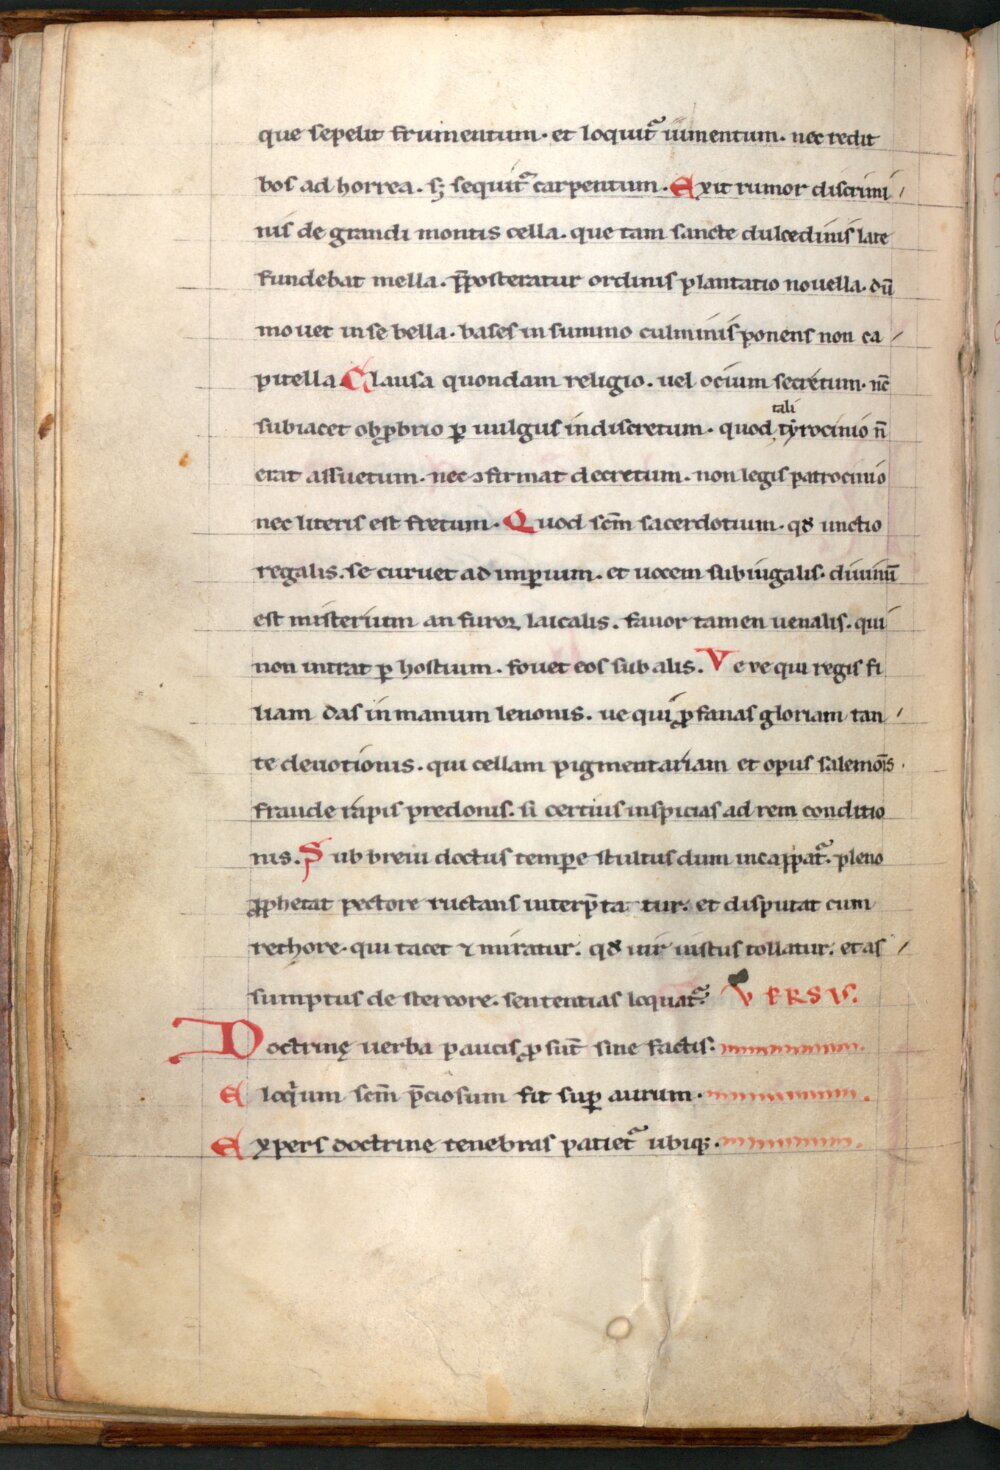 que sepelit frumentum· et loquit᷑ iumentum· nec redit
bos ad horrea· sꝫ sequit᷑ carpentum· Exit rumor discrimi
nis de grandi montis cella· que tam sancte dulcedinis late
fundebat mella· p̄posteratur ordinis plantatio nouella· dū
mouet in se bella· bases in summo culminis ponens non ca
pitella· Clausa quondam religio· uel ocium secretum· nc̄
subiacet obꝓbrio ꝑ uulgus indiscretum· quod tali tẏrocinio n̄
erat assuetum· nec ɔfirmat decretum· non legis patrocinio
nec literis est fretum· Quod scm̄ sacerdotium· qđ unctio
regalis· se curuet ad imꝑium· et uocem subiugalis· diuinū
est misterium an furor laicalis· fauor tamen uenalis· qui
non intrat ꝑ hostium· fouet eos sub alis· Ve ve qui regis fi
liam das in manum lenonis· ue qui ꝓfanas gloriam tan
te deuotionis· qui cellam pigmentariam et opus salemōis·
fraude rapis predonis· si certius inspicias ad rem conditio
nis· Sub breui doctus temꝑe stultus dum incaꝑpat᷑· pleno
ꝓphetat pectore ructans interp̄ta tur· et disputat cum
rethore· qui tacet ⁊ miratur· qđ uir iustus tollatur· et as
sumptus de stercore· sententias loquat᷑· VERSVS·
Doctrinę uerba paucis ꝓsūt sine factis·
Eloqͥum scm̄ p̄ciosum fit suꝑ aurum·
Expers doctrine tenebras patiet᷑ ubiqꝫ·